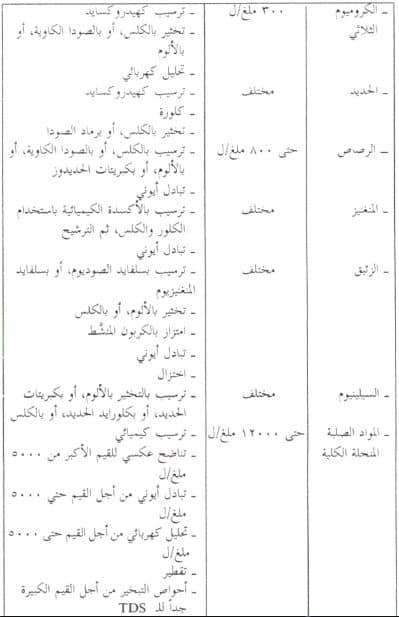 ـ الكروميوم ٣٠٠ ملغ/ل ـ ترسيب كهيدروكسايد
الثلاثي ـ تخثير بالكلس، أو بالصودا الكاوية، أو
بالألوم
ـ تحليل كهربائي
ـ الحديد مختلف ـ ترسيب كهيدروكسايد
ـ كلورة
ـ تخثير بالكلس، أو برماد الصودا
ـ الرصاص حتى ٨٠٠ ملغ/ل ـ ترسيب بالكلس، أو بالصودا الكاوية، أو
بالألوم، أو بكبريتات الحديدوز
ـ تبادل أيوني
ـ المنغنيز مختلف ـ ترسيب بالأكسدة الكيميائية باستخدام
الكلور والكلس، ثم الترشيح
ـ تبادل أيوني
ـ الزئبق مختلف ـ ترسيب بسلفايد الصوديوم، أو بسلفايد
المنغنيزيوم
ـ تخثير بالألوم، أو بالكلس
ـ امتزاز بالكربون المنشَّط
ـ تبادل أيوني
ـ اختزال
ـ السيلينيوم مختلف ـ ترسيب بالتخثير بالألوم، أو بكبريتات
الحديد، أو بكلورايد الحديد، أو بالكلس
ـ المواد الصلبة حتى ١٢٠٠٠ ملغ/ل ـ ترسيب كيميائي
المنحلة الكلية ـ تناضح عكسي للقيم الأكبر من ٥٠٠٠
ملغ/ل
ـ تبادل أيوني من أجل القيم حتي ٥٠٠٠
ملغ/ل
ـ تحليل كهربائي من أجل القيم حتى ٥٠٠٠
ملغ/ل
ـ تقطير
ـ أحواض التبخير من أجل القيم الكبيرة
جداً للـ TDS